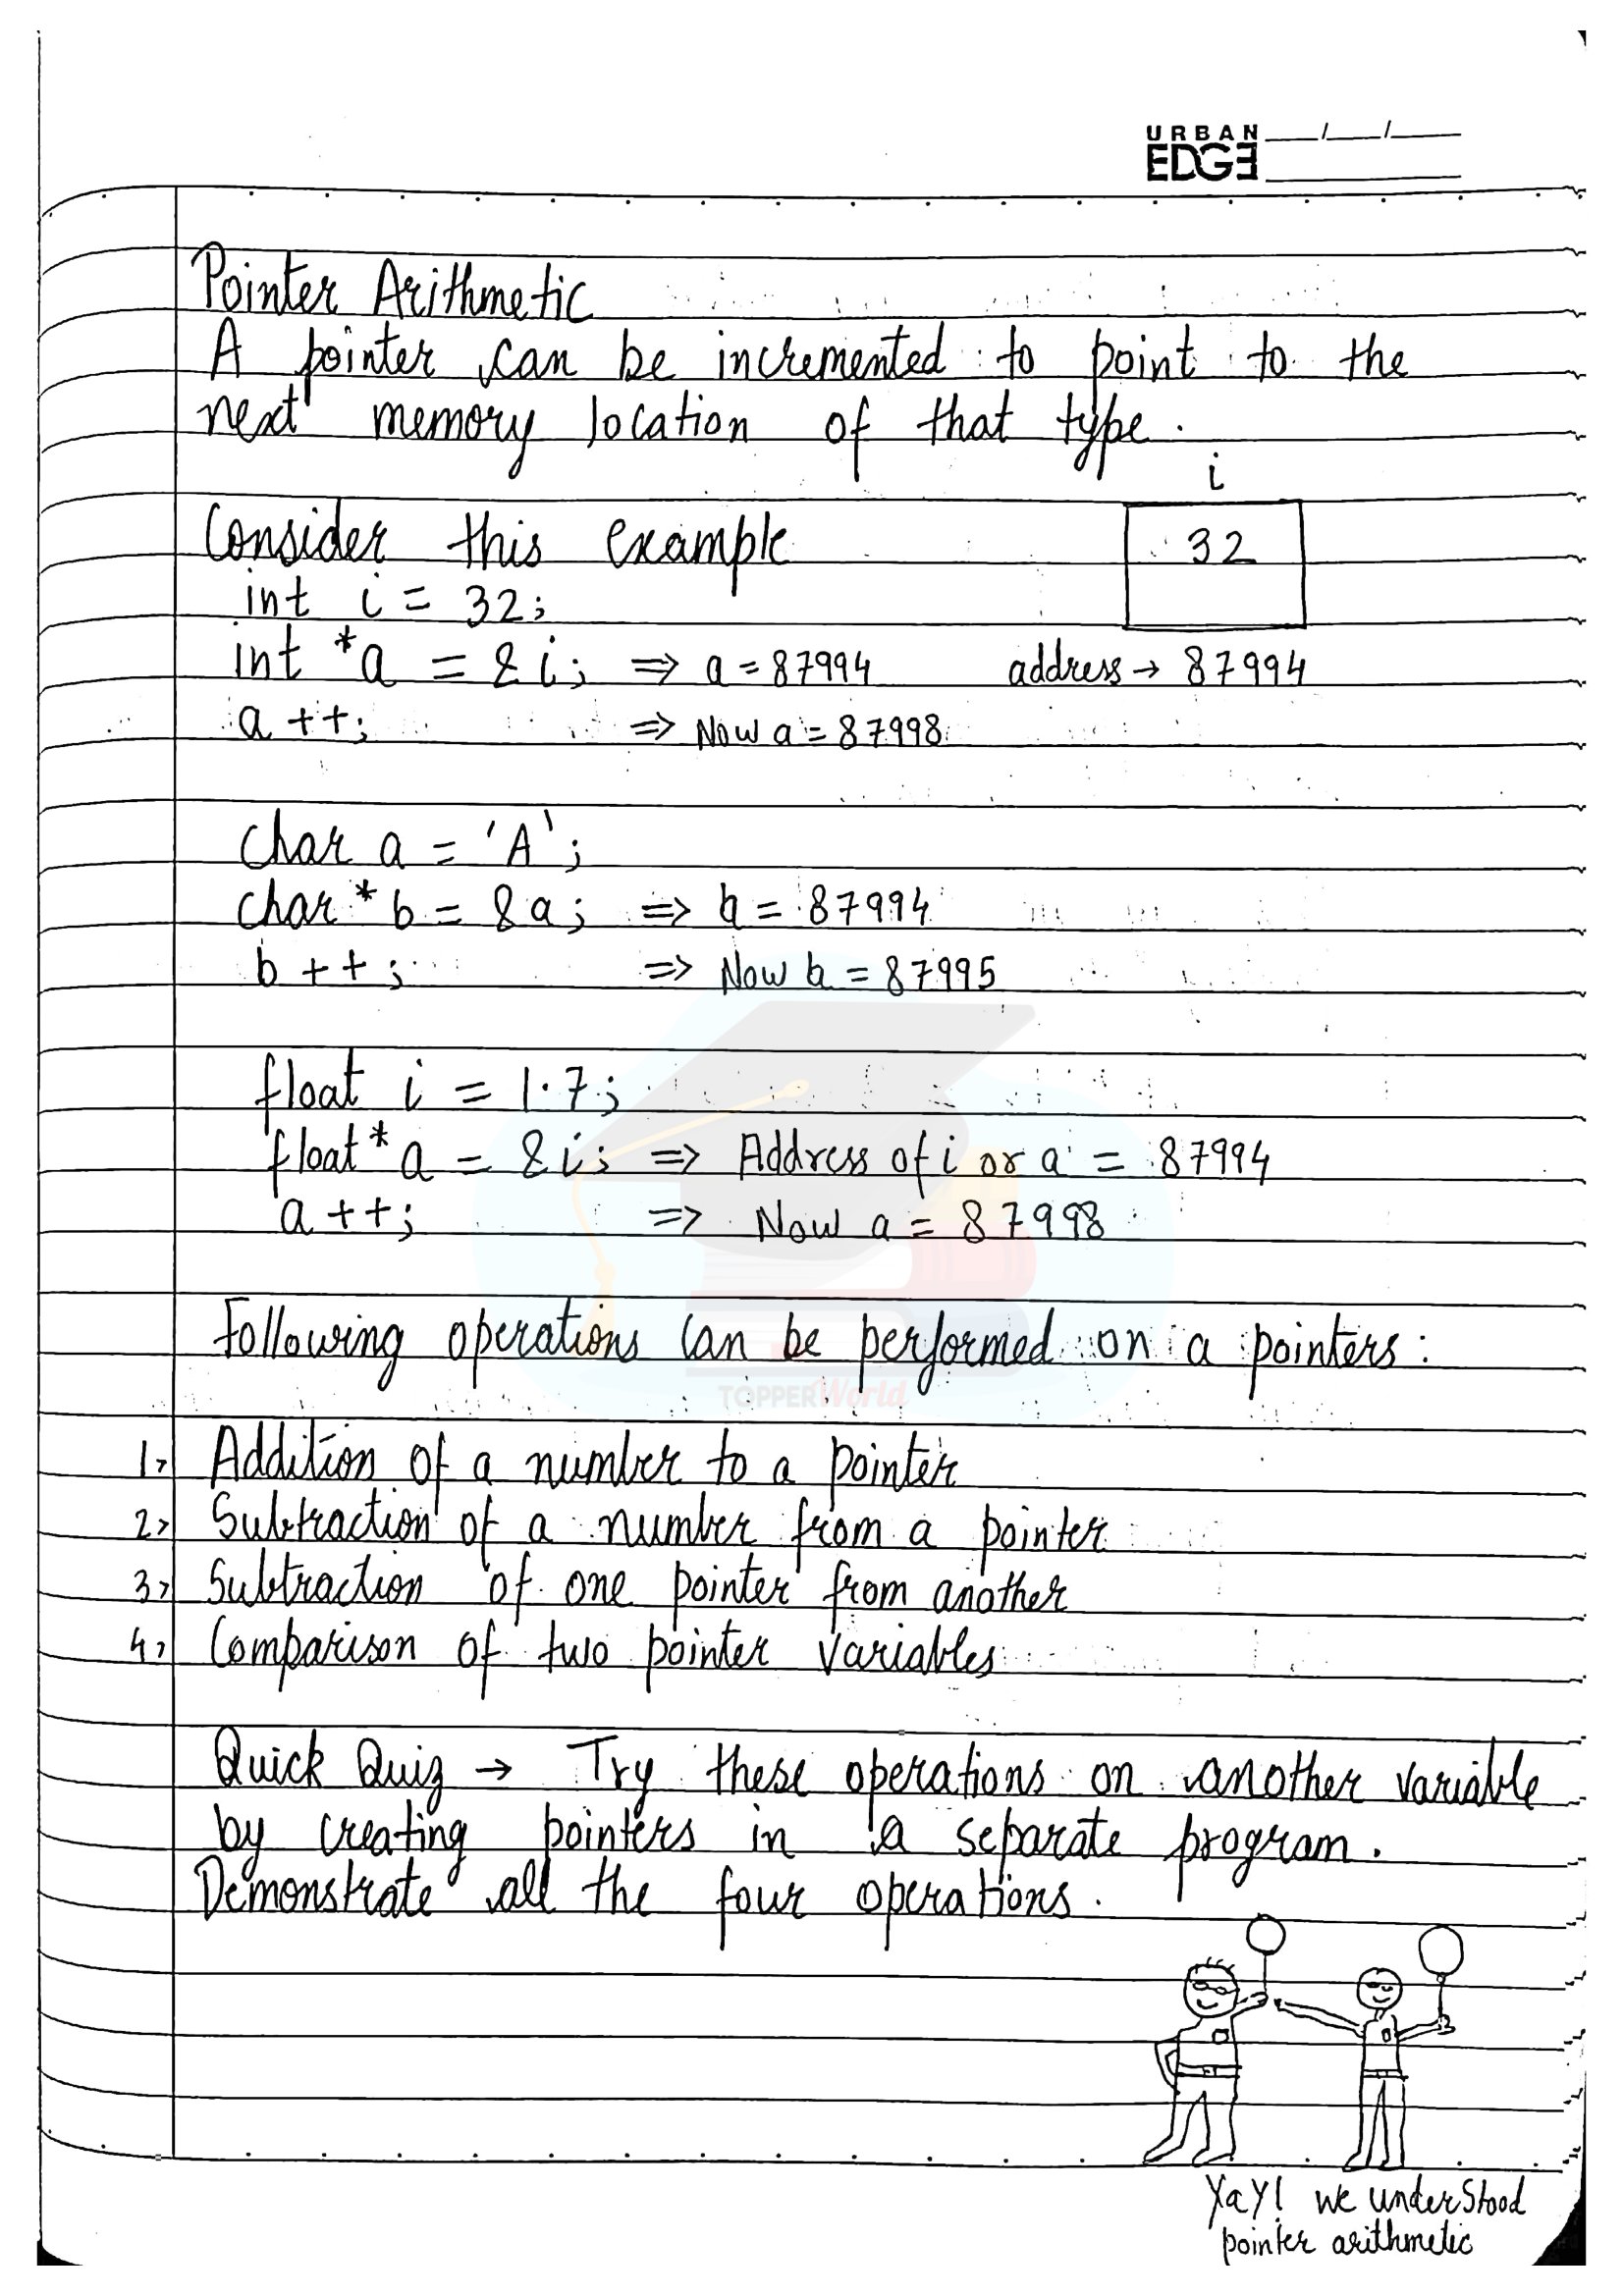 URBAN
EDGE
Pointer Arithmetic
A pointer can be incremented to point to the
next memory location of that type.
i
Consider this example
32
int i = 32;
int *a = &i; => a = 87994 address → 87994
a ++; => Now a = 87998
char a = 'A';
char * b = &a; => b = 87994
b ++; => Now b = 87995
float i = 1.7;
float * a = &i; => Address of i or a = 87994
a ++; => Now a = 87998
Following operations can be performed on a pointers:
TOPPERWorld
1> Addition of a number to a pointer
2> Subtraction of a number from a pointer
3> Subtraction of one pointer from another
4> Comparison of two pointer variables
Quick Quiz → Try these operations on another variable
by creating pointers in a separate program.
Demonstrate all the four operations.
YaY! we understood
pointer arithmetic